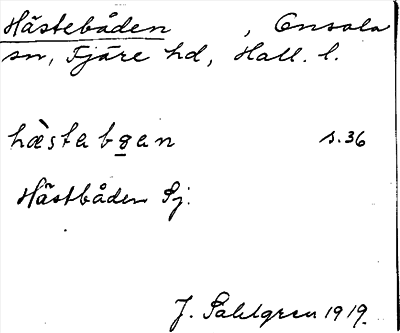 Hästebåden , Onsala
sn, Fjäre hd, Hall. l.
hæ̀sta bꝋan s. 36
Hästbåden Sj.
J. Sahlgren 1919.